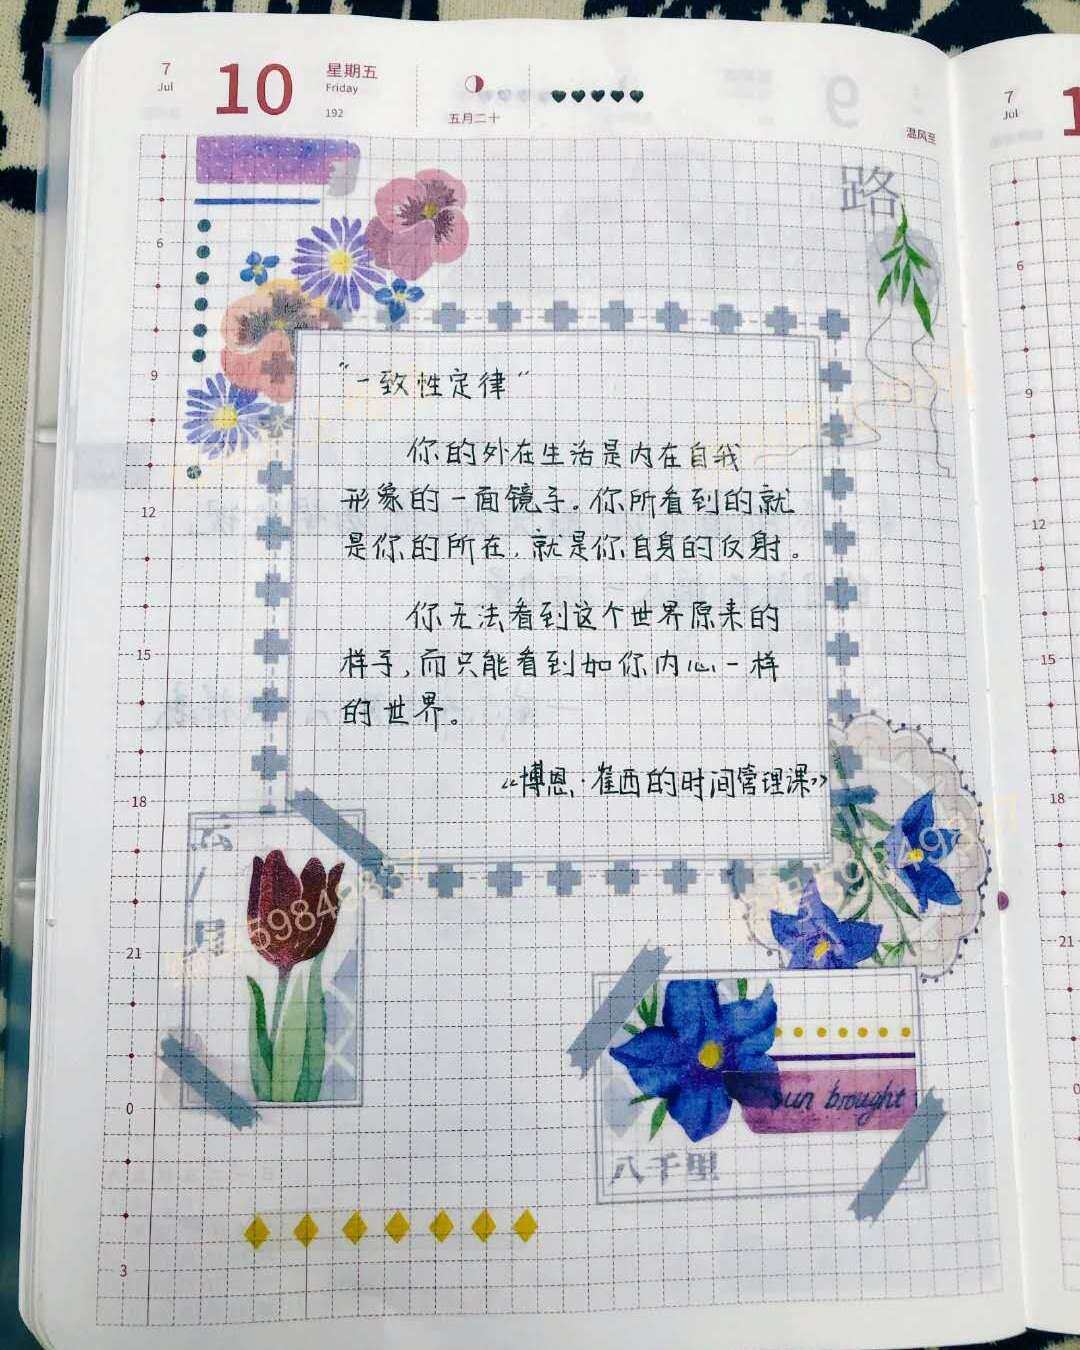 7
Jul
10
星期五
Friday
192
五月二十
温风至
7
Jul
1
路
6
9
12
15
18
21
0
3
6
9
12
15
18
21
0
3
"一致性定律"
你的外在生活是内在自我
形象的一面镜子。你所看到的就
是你的所在，就是你自身的反射。
你无法看到这个世界原来的
样子，而只能看到如你内心一样
的世界。
《博恩·崔西的时间管理课》
sun brought
八千里